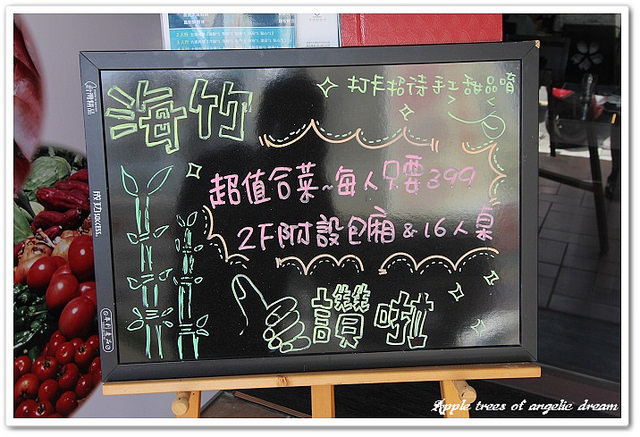 海竹
打卡招待手工甜品唷
超值合菜~每人只要399
2F附設包廂&16人桌
讚啦
SUCCESS
Apple trees of angelic dream